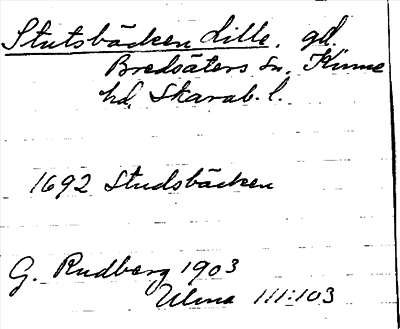 Stutsbäcken Lille, gd.
Bredsäters sn, Kinne
hd, Skarab. l.
1692 Studsbäcken
G. Rudberg 1903
Ulma 111:103